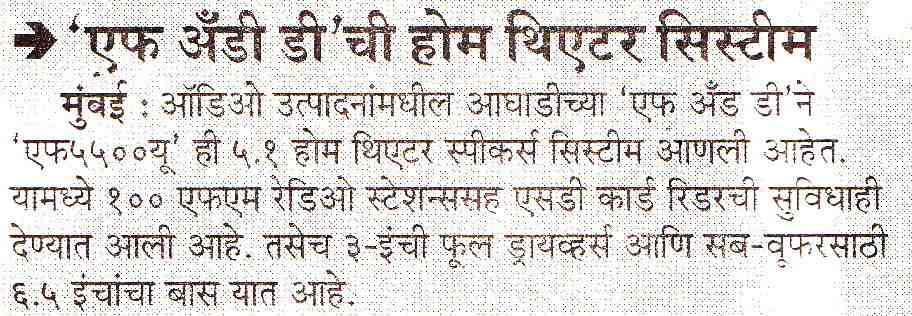 ➔ ‘एफ अँडी डी’ची होम थिएटर सिस्टीम
मुंबई : ऑडिओ उत्पादनांमधील आघाडीच्या ‘एफ अँड डी’ने
‘एफ५५००यू’ ही ५.१ होम थिएटर स्पीकर्स सिस्टीम आणली आहेत.
यामध्ये १०० एफएम रेडिओ स्टेशन्ससह एसडी कार्ड रिडरची सुविधाही
देण्यात आली आहे. तसेच ३-इंची फूल ड्रायव्हर्स आणि सब-वूफरसाठी
६.५ इंचांचा बास यात आहे.